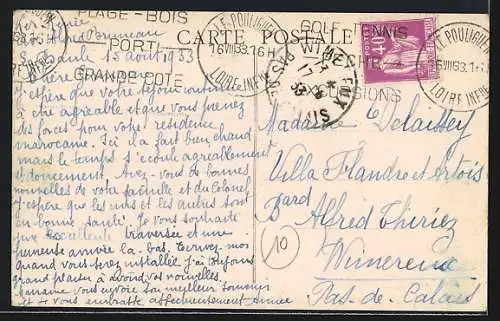 PLAGE - BOIS
PORT
GRANDE COTE
LE POULIGUEN
16 VIII 33.16H
LOIRE INFRE
CARTE POSTALE
GOLF
TENNIS
EXCURSIONS
WIMEREUX
PAS DE
40
LE POULIGUEN
16 VIII 33.16
LOIRE INFRE
15 août 1933
J'espère que votre séjour continue
à être agréable et que vous prenez
des forces pour votre résidence
marocaine. Ici il a fait bien chaud
mais le temps s'écoule agréablement
et doucement. Avez-vous de bonnes
nouvelles de votre famille et du Colonel
J'espère que les uns et les autres sont
en bonne santé. Je vous souhaite
une excellente traversée et une
heureuse arrivée là-bas. Ecrivez-moi
quand vous serez installée. J'ai toujours
grand plaisir à avoir vos nouvelles.
Maman vous envoie son meilleur souvenir
et je vous embrasse affectueusement
Madame Delaissey
Villa Flandre et Artois
Bard Alfred Thiriez
Wimereux
Pas-de-Calais
10